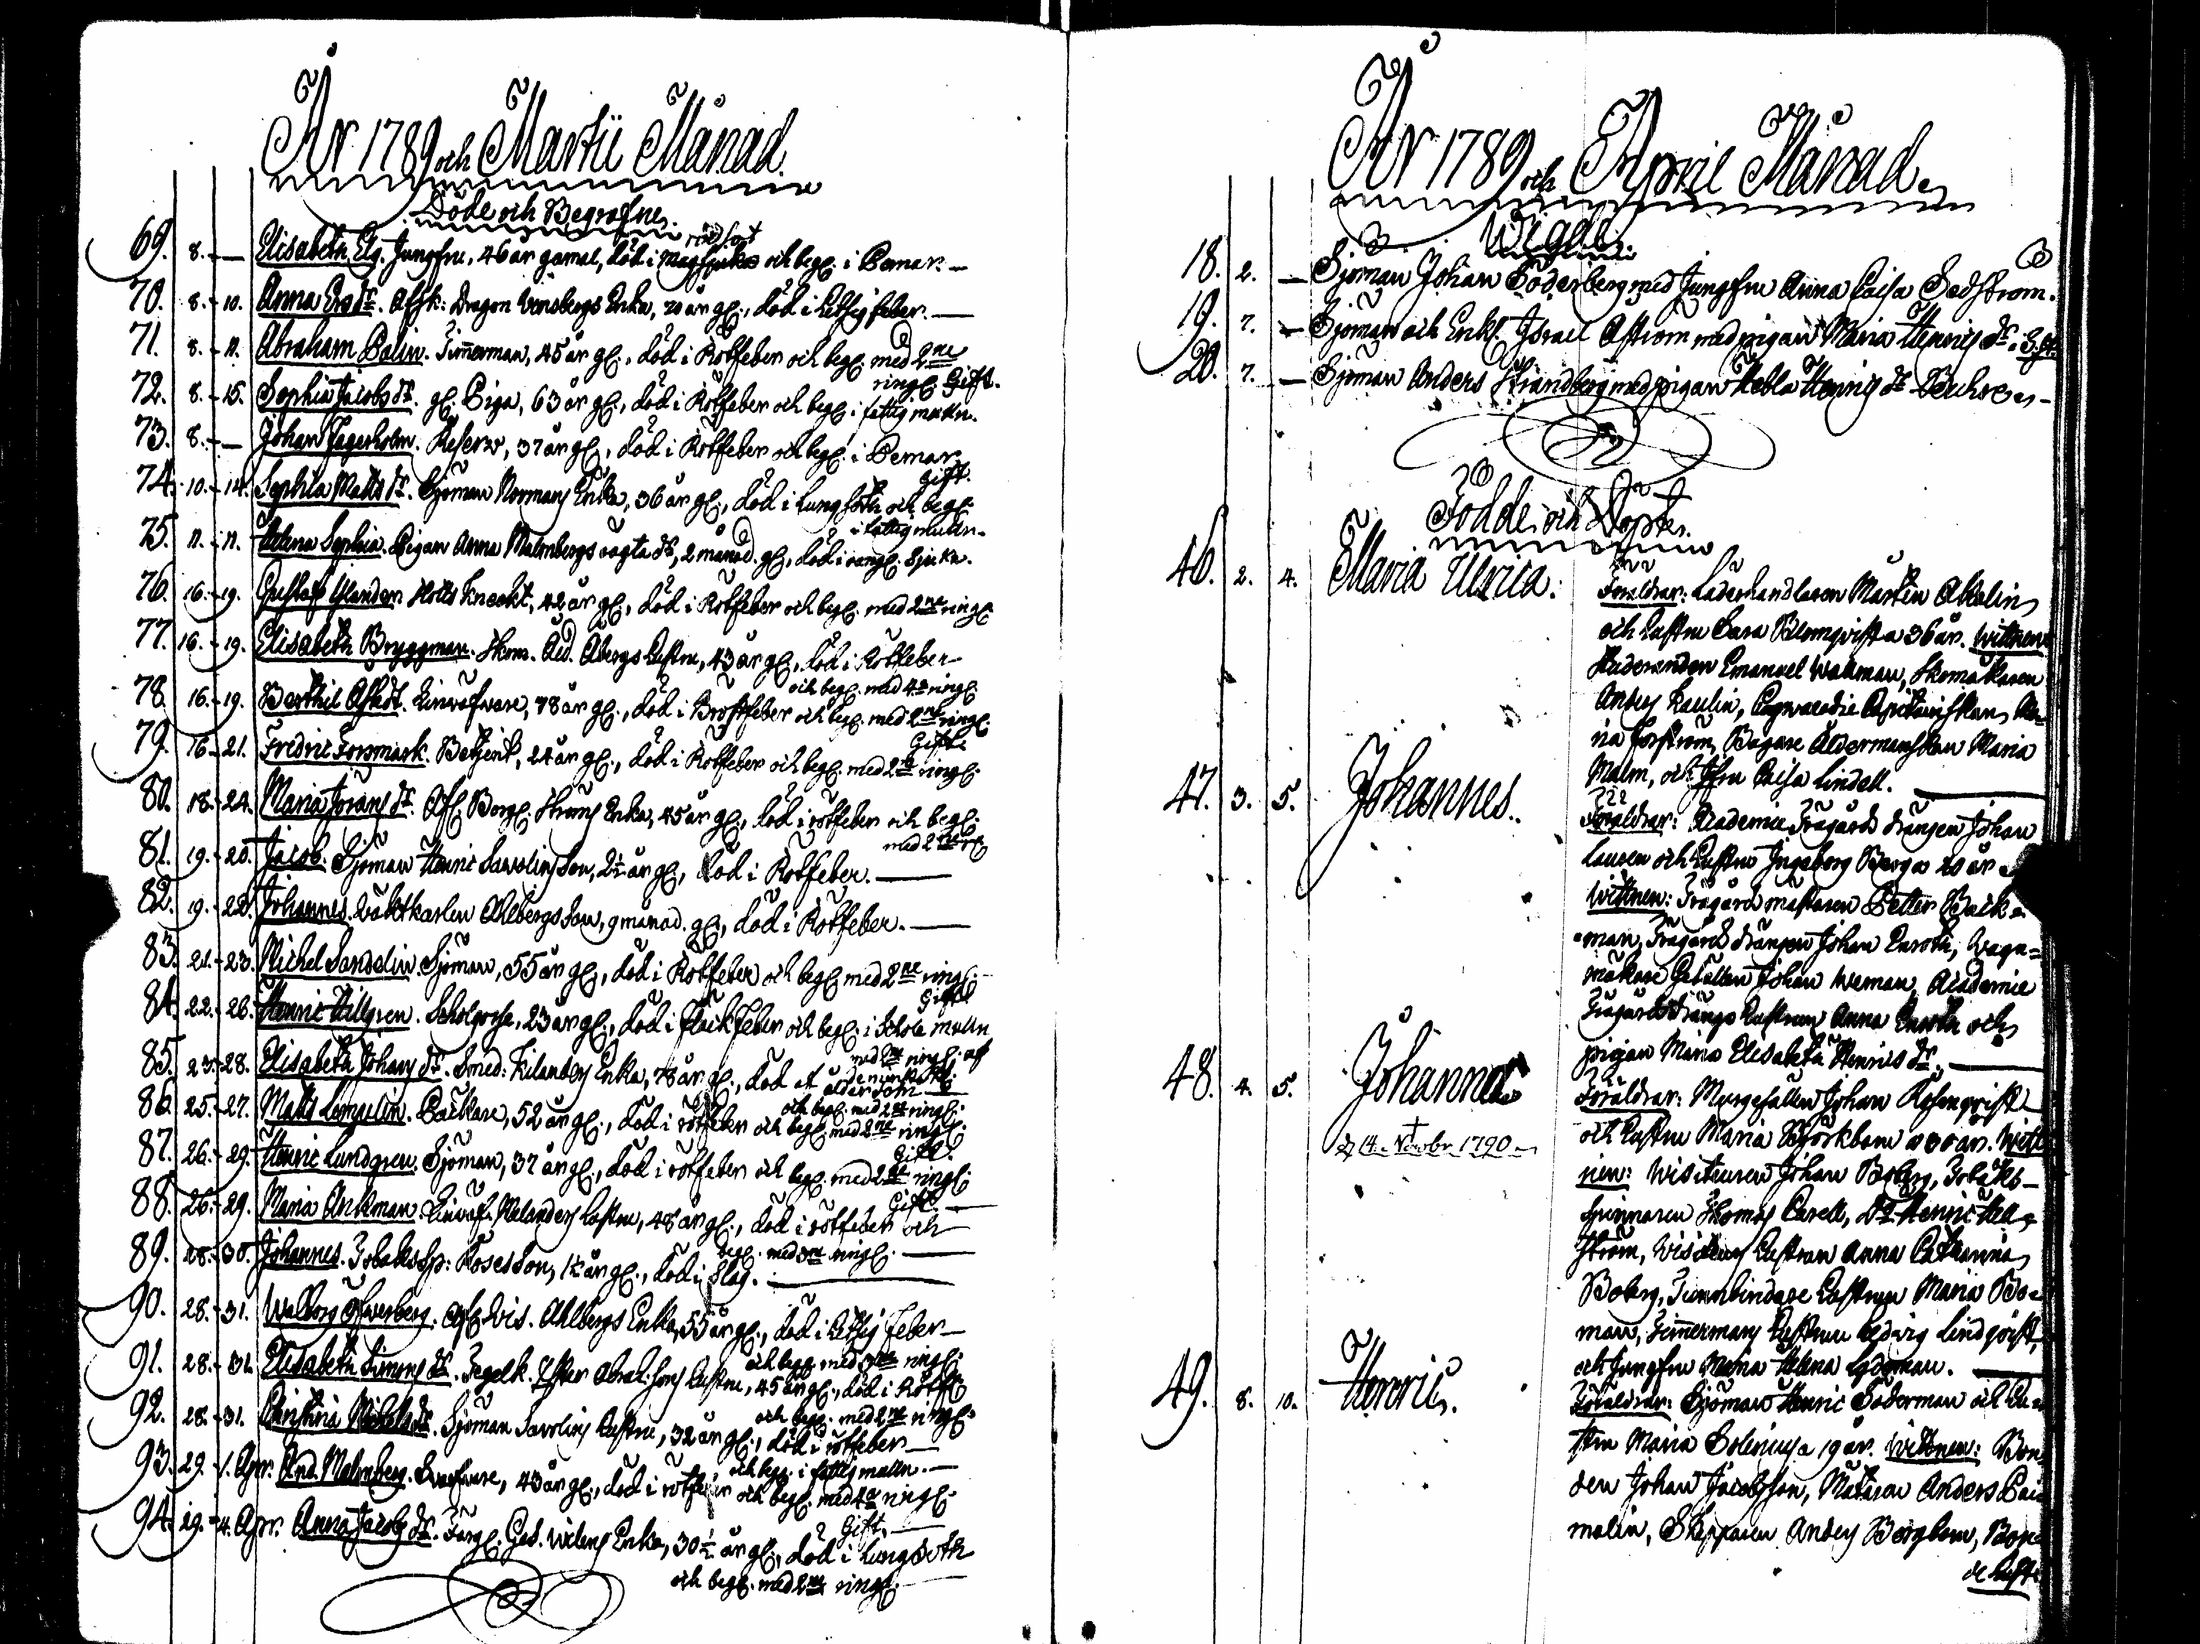 År 1789 och Martii Månad.
Döde och Begrafne.
rötfot
69. 8. — Elisabeth Elg. Jungfru, 46 år gamal, död i och begr. i Pemar. —
70. 8. - 10. Anna dr. Afsk: Dragon Enka, 70 år gl., död i Hetsig feber. —
71. 8. - 11. Abraham Palin. Timerman, 45 år gl., död i Rötfeber och begr. med 2ne
ringr. Gift.
72. 8. - 15. Sophia Jacobs dr. gl. Piga, 63 år gl., död i Rötfeber och begr. i fattig mulln.
73. 8. — Johan Fagerholm. Reserv, 37 år gl., död i Rötfeber och begr. i Pemar.
Gift.
74. 10. - 14. Sophia Matts dr. Sjöman Normans Enka, 36 år gl., död i Lungsoth och begr.
i fattigmulln.
75. 11. - 11. Helena Sophia. Pigan Anna Malmbergs oägta dr, 2 månad. gl., död i sjuka.
76. 16. - 19. Gustaf Ylander. Hofrätts Kneckt, 42 år gl., död i Rötfeber och begr. med 2ne ringr.
77. 16. - 19. Elisabeth Bryggman. Skom. Åld. Åbergs Hustru, 43 år gl., död i Rötfeber
och begr. med 4ra ringr.
78. 16. - 19. Berthil Ahlstedt. Linväfvare, 78 år gl., död i Bröstfeber och begr. med 2ne ringr.
Gift.
79. 16. - 21. Fredric Forsmark. Betjent, 24 år gl., död i Rötfeber och begr. med 2ne ringr.
80. 18. - 24. Maria Görans dr. Afl. Borgr. Enka, 45 år gl., död i rötfeber och begr.
med 2ne rr.
81. 19. - 20. Jacob. Sjöman Henric Savolins Son, 2½ år gl., död i Rötfeber. —
82. 19. - 22. Johannes. Väktkarlen Ahlbergs Son, 9 månad. gl., död i Rötfeber. —
83. 21. - 23. Michel Sandelin. Sjöman, 55 år gl., död i Rötfeber och begr. med 2ne ringr.
Gift
84. 22. - 26. Henric Hillgren. Scholgosse, 23 år gl., död i fläckfeber och begr. i Schole mulln
med 2ne ringr. af
85. 23. - 28. Elisabeth Johans dr. Smed: Kilanders Enka, 78 år gl., död af ålderdom
och begr. med 2ne ringr.
86. 25. - 27. Matts Lempelin. Packare, 52 år gl., död i rötfeber och begr. med 2ne ringr.
Gift.
87. 26. - 29. Henric Lundgren. Sjöman, 37 år gl., död i rötfeber och begr. med 2ne ringr.
Gift. —
88. 26. - 29. Maria Ankman. Linväf. Melanders Hustru, 48 år gl., död i rötfeber och
begr. med 3ne ringr. —
89. 28. - 30. Johannes. Tobakssp: Roses Son, 1½ år gl., död i Slag. —
90. 28. - 31. Walborg Öfverberg. Afl. Vis. Ahlbergs Enka, 55 år gl., död i Hetsig feber —
och begr. med 3ne ringr.
91. 28. - 31. Elisabeth Simons dr. Segelk. Gester Abrahamsons Hustru, 45 år gl., död i Rötfb
och begr. med 2ne ringr.
92. 28. - 31. Christina Michels dr. Sjöman Savolins Hustru, 32 år gl., död i rötfeber —
och begr. i fattig mulln. —
93. 29. - 1. Apr. And. Malmberg. , 43 år gl., död i rötfeber och begr. med 4ra ringr.
Gift. —
94. 29. - 4. Apr. Anna Jacobs dr. Färg. Ges. Wilens Enka, 30½ år gl., död i Lungsoth
och begr. med 2ne ringr. —
År 1789 och April Månad.
Wigde.
18. 2. — Sjöman Johan Söderberg med Jungfru Anna Caisa Sedström.
19. 7. — Sjöman och Enkl. Israel Åström med pigan Maria Henrics dr.
20. 7. — Sjöman Anders Strandberg med pigan Hebla Henrics dr
Födde och Döpte.
46. 2. 4. Maria Ulrica:
Föräldrar: Läderhandlaren Mårten Akelin
och Hustru Sara Blomqvist a 36 år. Wittnen
Studeranden Emanuel Wallman, Skomakaren
Anders Paulin, Capitainskan Ma-
ria Forsström, Bagare Åldermanskan Maria
Malm, och Jfru Caisa Lindell. —
47. 3. 5. Johannes.
Föräldrar: Academie Trägårds drängen Johan
Lauren och Hustru Ingeborg Berg a 20 år
Wittnen: Trägårdmästaren Petter Back-
man, Trägårds drängen Johan Enroth, Wagn-
makare Gesällen Johan Weman, Academie
Trägårds drängs Hustrun Anna Enroth och
pigan Maria Elisabeth Henrics dr. —
48. 4. 5. Johanna
† d. 14. Novbr 1790
Föräldrar: Murgesällen Johan Rosenqvist
och Hustru Maria Björkbom a 30 år. Witt-
nen: Visiteuren Johan Boberg, Tobaks-
spinnaren Thomas Carell, Dr. Henric Hell-
ström, Visiteurs Hustrun Anna Catharina
Boberg, Tunnbindare Hustrun Maria Bo-
man, Timmermans Hustrun Hedvig Lindqvist,
och Jungfru Maria Helena Lydman. —
49. 8. 10. Henric.
Föräldrar: Sjöman Henric Söderman och Hu-
stru Maria Bolenius a 19 år. Wittnen: Bon-
den Johan Jacobsson, Målaren Anders
malin, Skepparen Anders Bergbom, Bon-
de Hustr